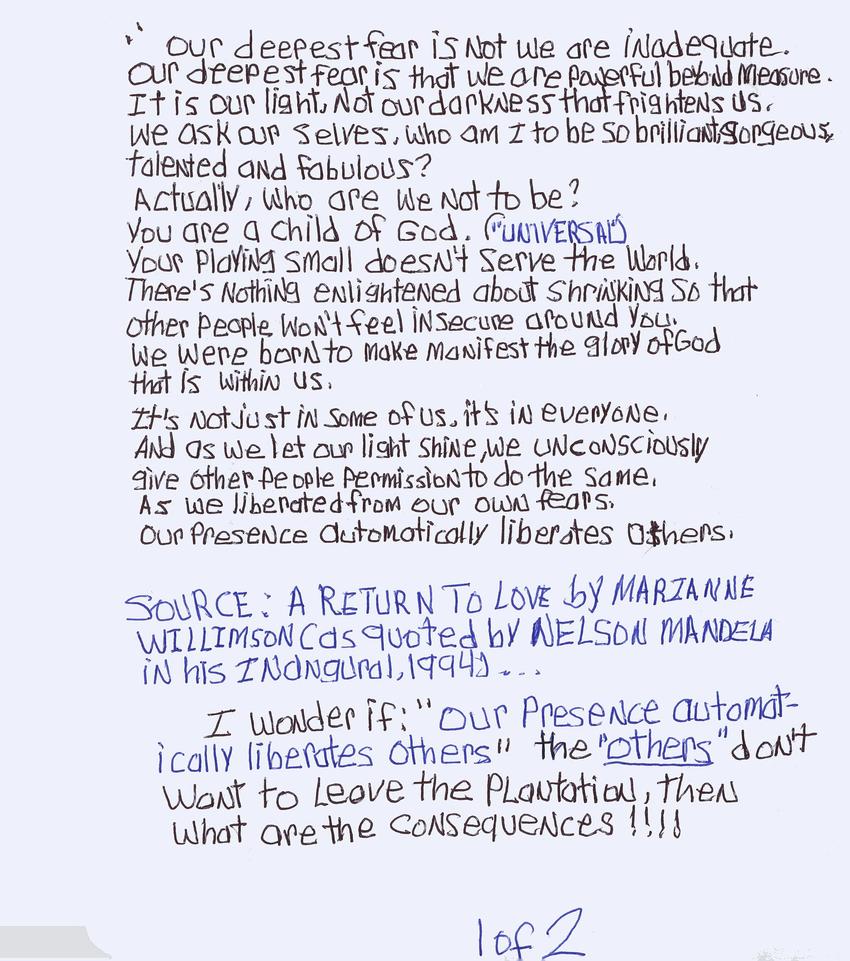 " Our deepest fear is Not we are inadequate.
Our deepest fear is that we are Powerful beyond Measure.
It is our light, Not our darkness that frightens us.
We ask our selves, Who am I to be so brilliant, gorgeous,
talented and fabulous?
Actually, Who are We Not to be?
You are a child of God. ("UNIVERSAL")
Your Playing small doesn't serve the World.
There's Nothing enlightened about shrinking so that
other people won't feel insecure around you.
We were born to make manifest the glory of God
that is within us.
It's Not just in some of us, it's in everyone.
And as we let our light shine, we unconsciously
give other people permission to do the same.
As we liberated from our own fears.
Our Presence automatically liberates others.
SOURCE: A RETURN TO LOVE by MARIANNE
WILLIMSON (as quoted by NELSON MANDELA
in his INAngural, 1994) ...
I wonder if: "Our Presence automat-
ically liberates others" the "others" don't
Want to Leave the Plantation, Then
What are the consequences !!!!
1 of 2